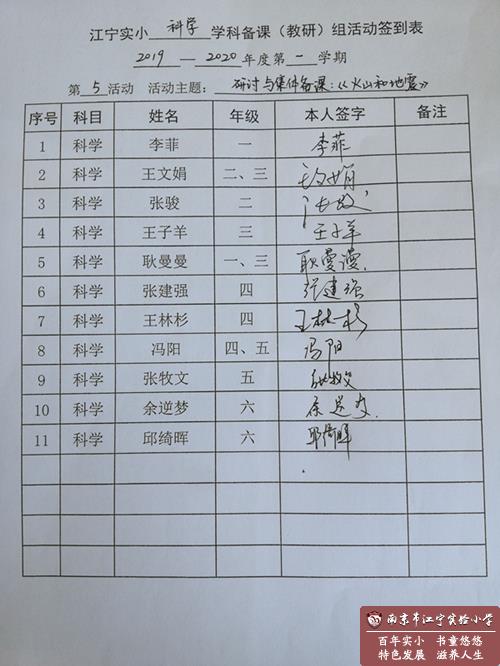 江宁实小 科学 学科备课（教研）组活动签到表
2019 — 2020 年度第 一 学期
第 5 活动 活动主题： 研讨与集体备课：《火山和地震》
序号 科目 姓名 年级 本人签字 备注
1 科学 李菲 一 李菲
2 科学 王文娟 二、三 王文娟
3 科学 张骏 二 张骏
4 科学 王子羊 三 王子羊
5 科学 耿曼曼 一、三 耿曼漫
6 科学 张建强 四 张建强
7 科学 王林杉 四 王林杉
8 科学 冯阳 四、五 冯阳
9 科学 张牧文 五 张牧文
10 科学 余逆梦 六 余逆梦
11 科学 邱绮晖 六 邱绮晖
南京市江宁实验小学
百年实小 书童悠悠
特色发展 滋养人生